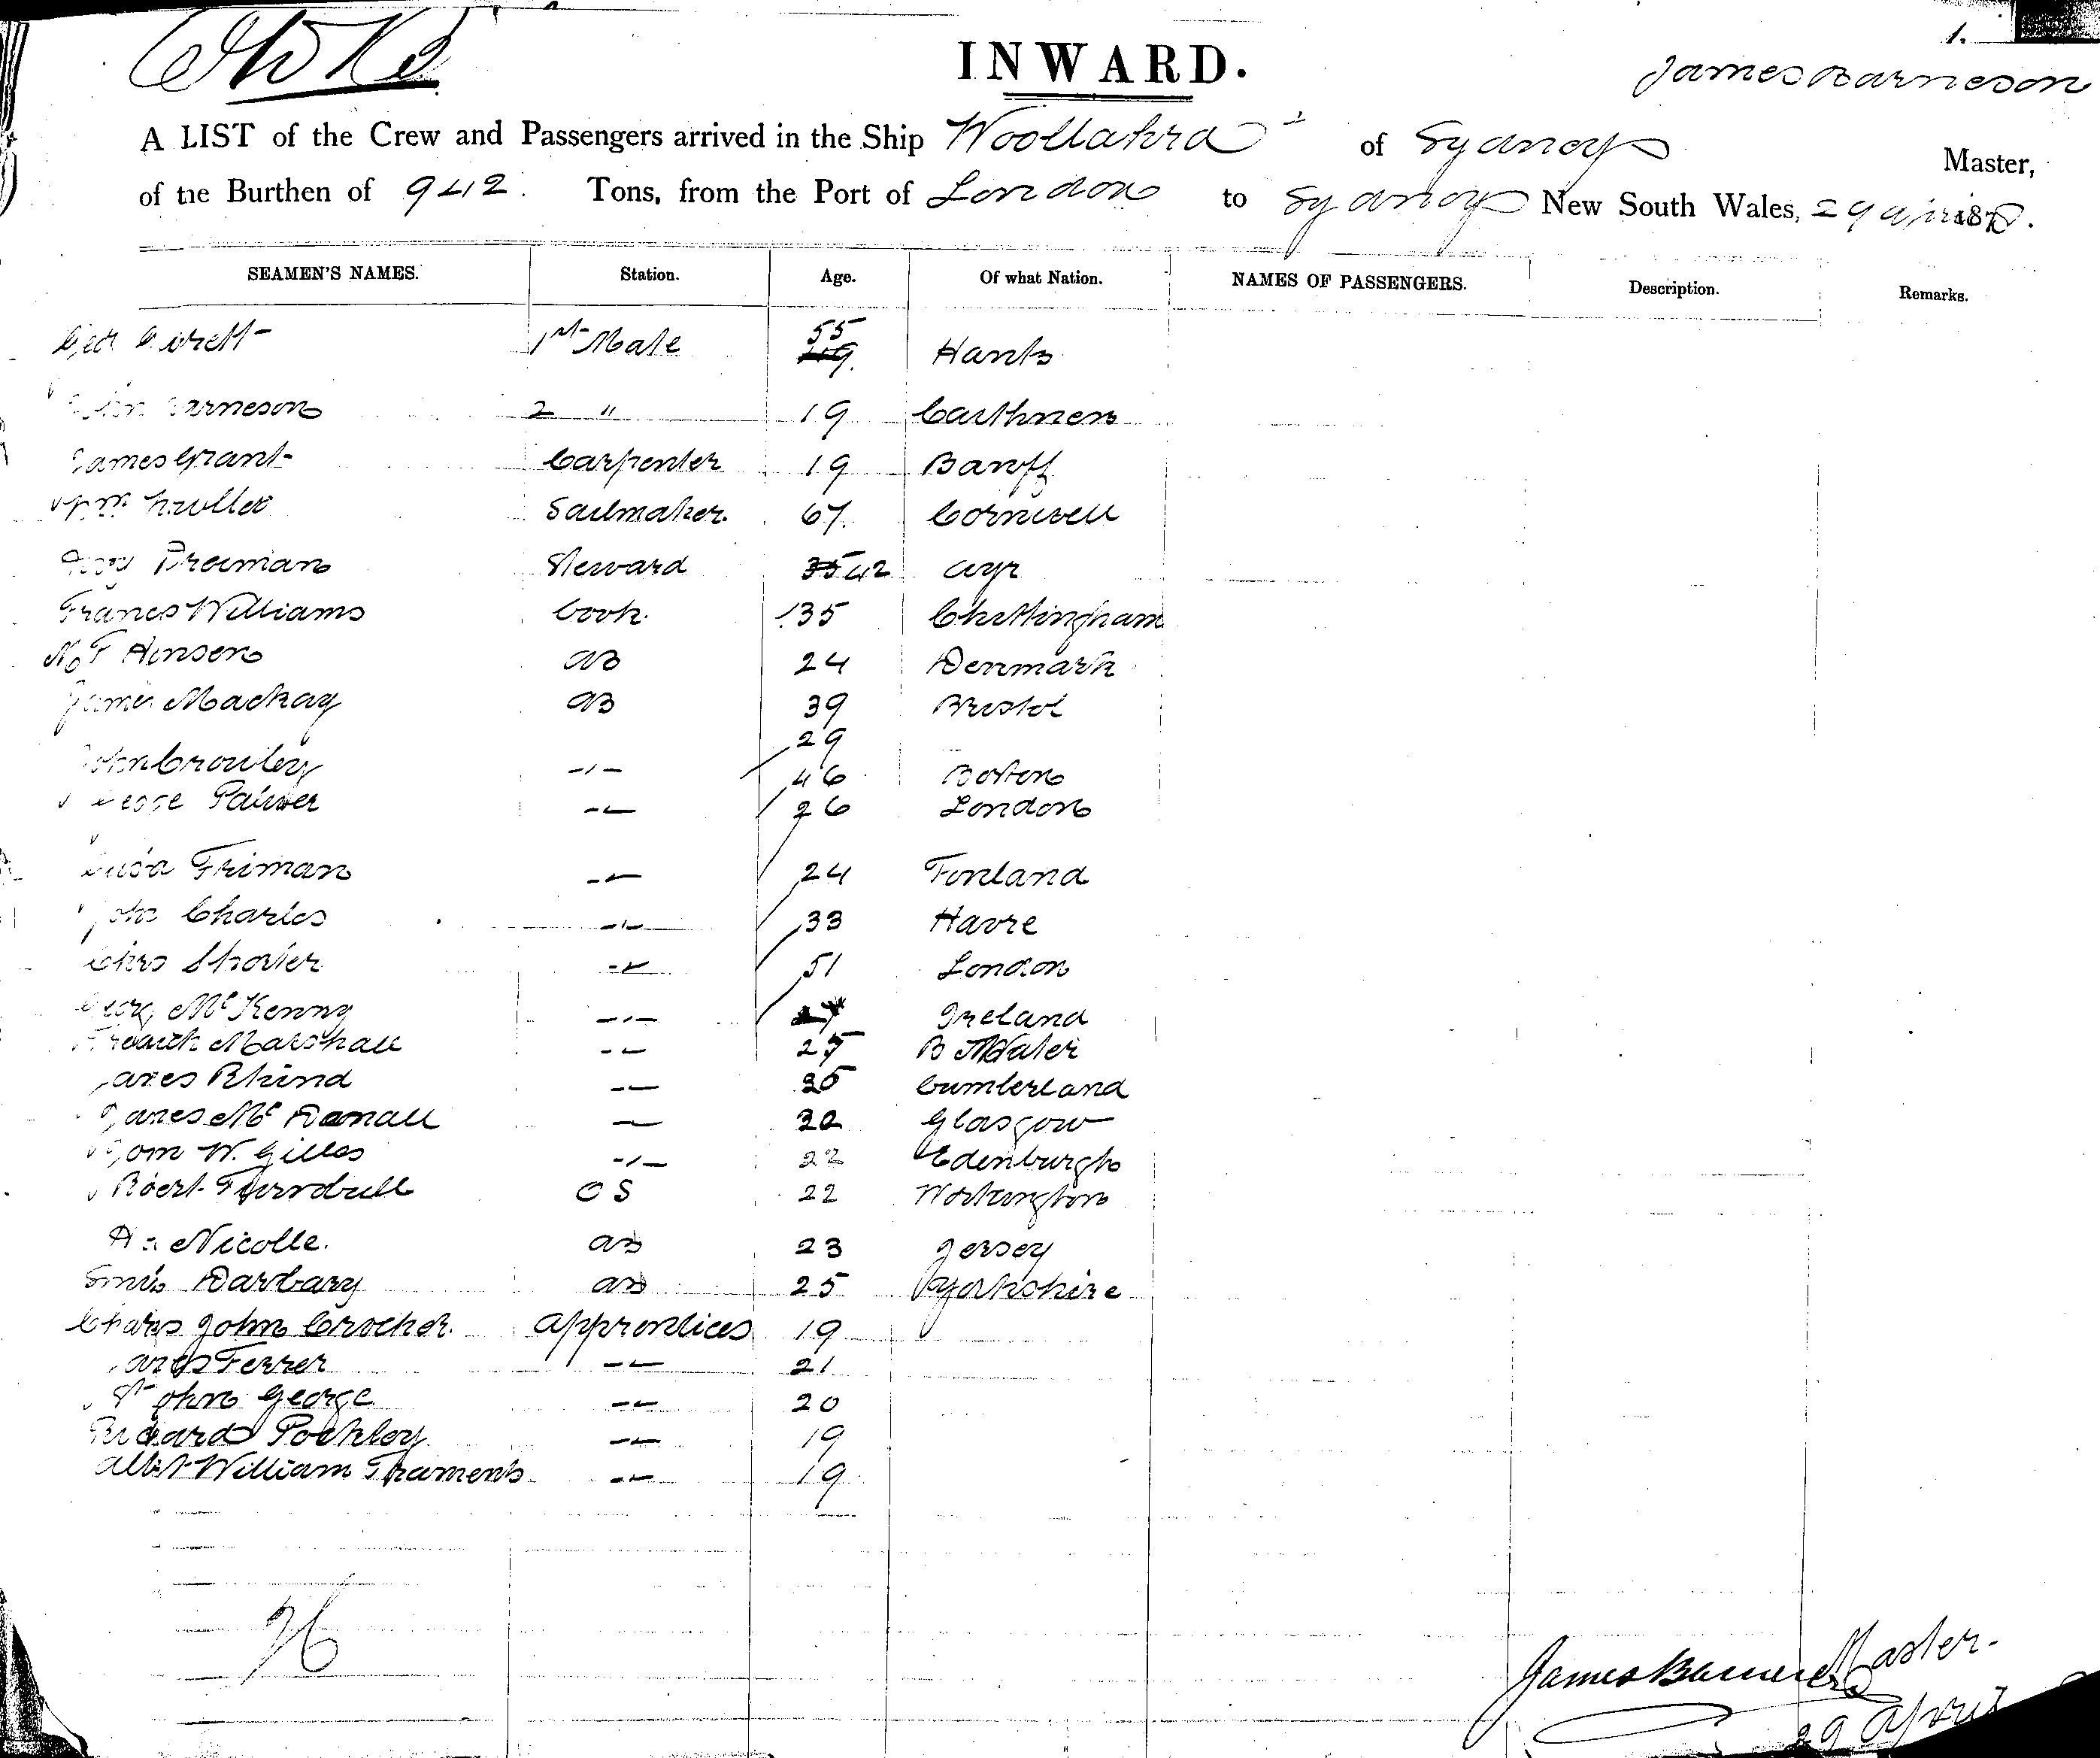 1.
INWARD.
James Barneson
A LIST of the Crew and Passengers arrived in the Ship Woollahra of Sydney Master,
of the Burthen of 942. Tons, from the Port of London to Sydney New South Wales, 29 April 187
SEAMEN'S NAMES. Station. Age. Of what Nation. NAMES OF PASSENGERS. Description. Remarks.
1st Mate 55 49 Hants
Barneson 2 " 19 Caithness
James Grant Carpenter 19 Banff
Sailmaker. 67. Cornwell
Steward 35 42 Ayr
Francis Williams Cook. 35 Chettingham
Hinsen AB 24 Denmark
James Mackay AB 39 Bristol
29
John Crowley -,- 46 Boston
Palmer -- 26 London
Friman -- 24 Finland
John Charles -,- 33 Havre
51 London
Georg McKenny -,- Ireland
Marshall -- 25 B Water
James Rhind -- 25 Cumberland
James Mc — 22 Glasgow
W. Gilles -,- 22 Edenburgh
Robert Turnbull OS 22 Workington
Nicolle. AB 23 Jersey
Darbary AB 25 Yorkshire
Charles John Crocker. Apprentices 19
James Ferrer -- 21
St John George -- 20
Richard Pockley -- 19
William -- 19
26
James Barneson Master
29 April